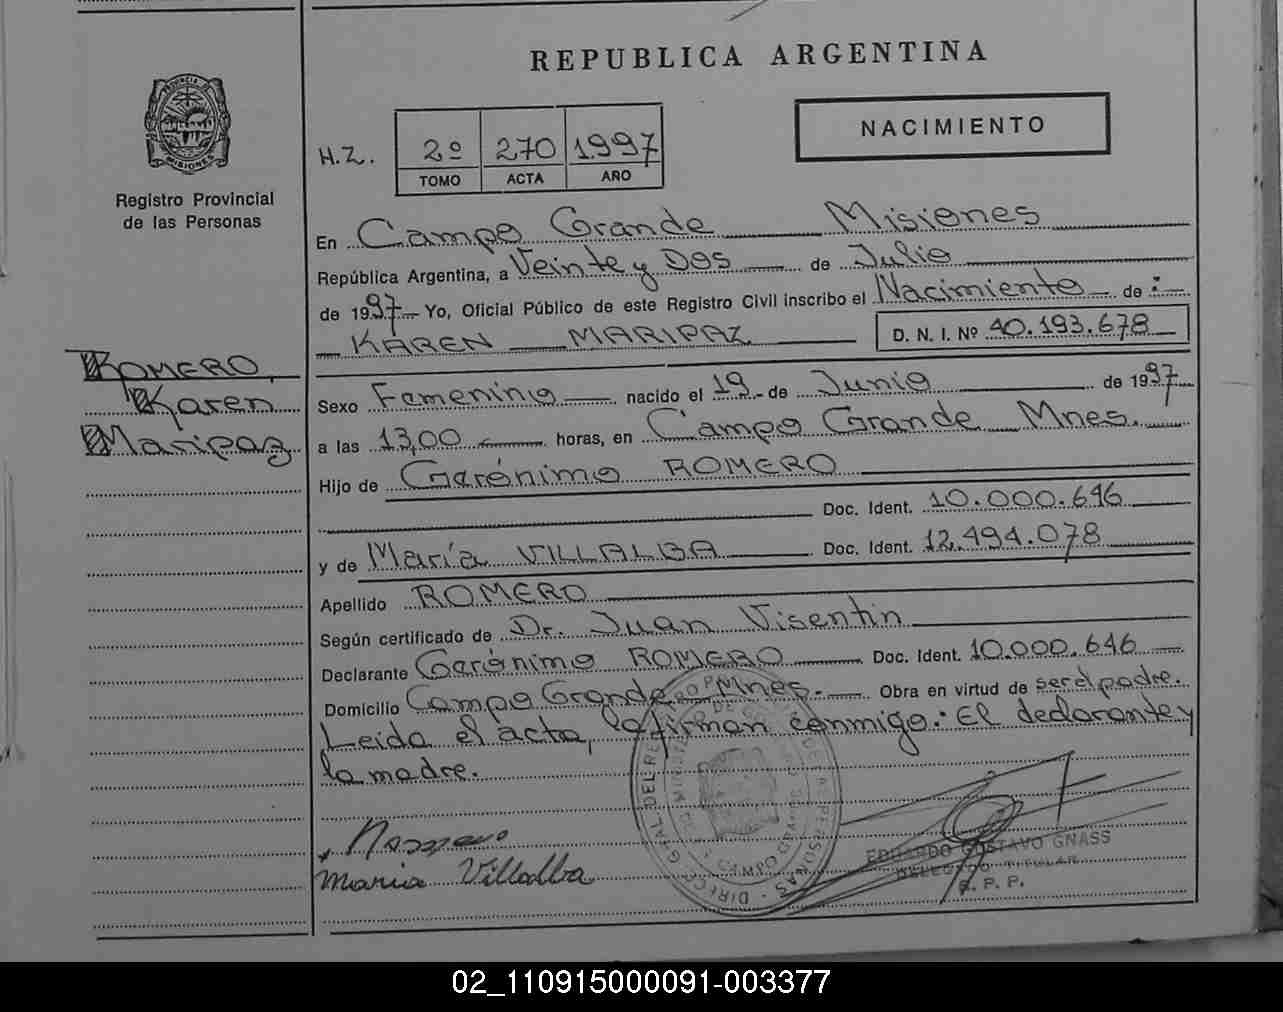 REPUBLICA ARGENTINA
PROVINCIA DE
MISIONES
Registro Provincial
de las Personas
NACIMIENTO
H.Z. 2º 270 1997
TOMO ACTA AÑO
En Campo Grande Misiones
República Argentina, a Veinte y Dos de Julio
de 1997 Yo, Oficial Público de este Registro Civil inscribo el Nacimiento de :
KAREN MARIPAZ D. N. I. Nº 40.193.678
ROMERO
Karen
Maripaz
Sexo Femenino nacido el 19 de Junio de 1997
a las 13,00 horas, en Campo Grande Mnes.
Hijo de Gerónimo ROMERO
Doc. Ident. 10.000.646
y de María VILLALBA Doc. Ident. 12.494.078
Apellido ROMERO
Según certificado de Dr. Juan Visentin
Declarante Gerónimo ROMERO Doc. Ident. 10.000.646
Domicilio Campo Grande Mnes. Obra en virtud de ser el padre.
Leída el acta, la firman conmigo: El declarante y
la madre.
Maria Villalba
EDUARDO GUSTAVO GNASS
DELEGADO TITULAR
R. P. P.
02_110915000091-003377